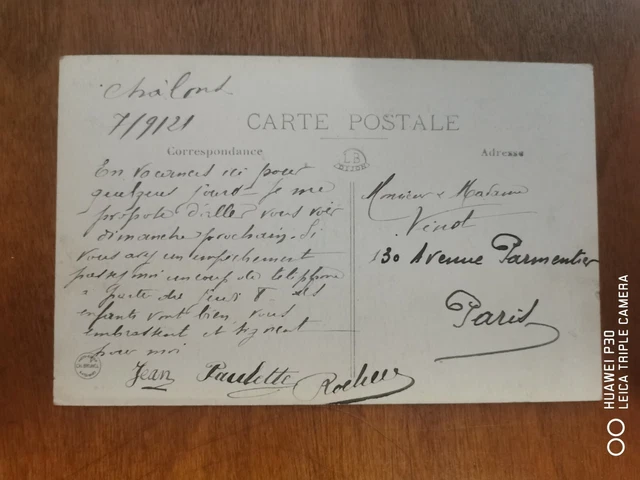 Châlons
7/9/21
CARTE POSTALE
Correspondance
Adresse
LB
DIJON
En vacances ici pour
quelques jours je me
propose d'aller vous voir
dimanche prochain. Si
vous avez un empêchement
passez moi un coup de téléphone
à partir du jeudi 8. Les
enfants vont bien, vous
embrassent et signent
pour moi
Jean Paulette
Monsieur & Madame
Vinot
130 Avenue Parmentier
Paris
HUAWEI P30
LEICA TRIPLE CAMERA